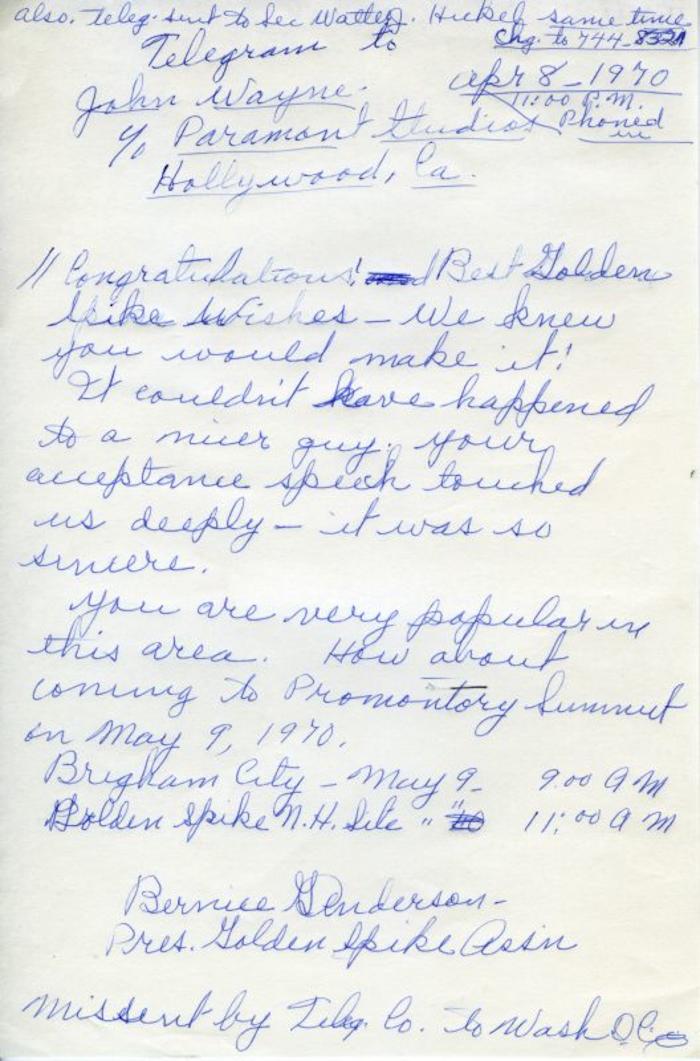 also. Teleg. sent to Sec Walter J. Hickel same time
Telegram to Chg. to 744-8321
John Wayne. Apr 8-1970
11:00 P.M.
c/o Paramont Studios Phoned in
Hollywood, Ca.
" Congratulations! Best Golden
Spike Wishes - We knew
you would make it!
It couldn't have happened
to a nicer guy. your
acceptance speech touched
us deeply - it was so
sincere.
You are very popular in
this area. How about
coming to Promontory Summit
on May 9, 1970.
Brigham City - May 9- 9:00 A M
Golden Spike N.H. Site " " 11:00 A M
Bernice G Anderson-
Pres. Golden Spike Assn
Missent by Teleg. Co. to Wash D.C.